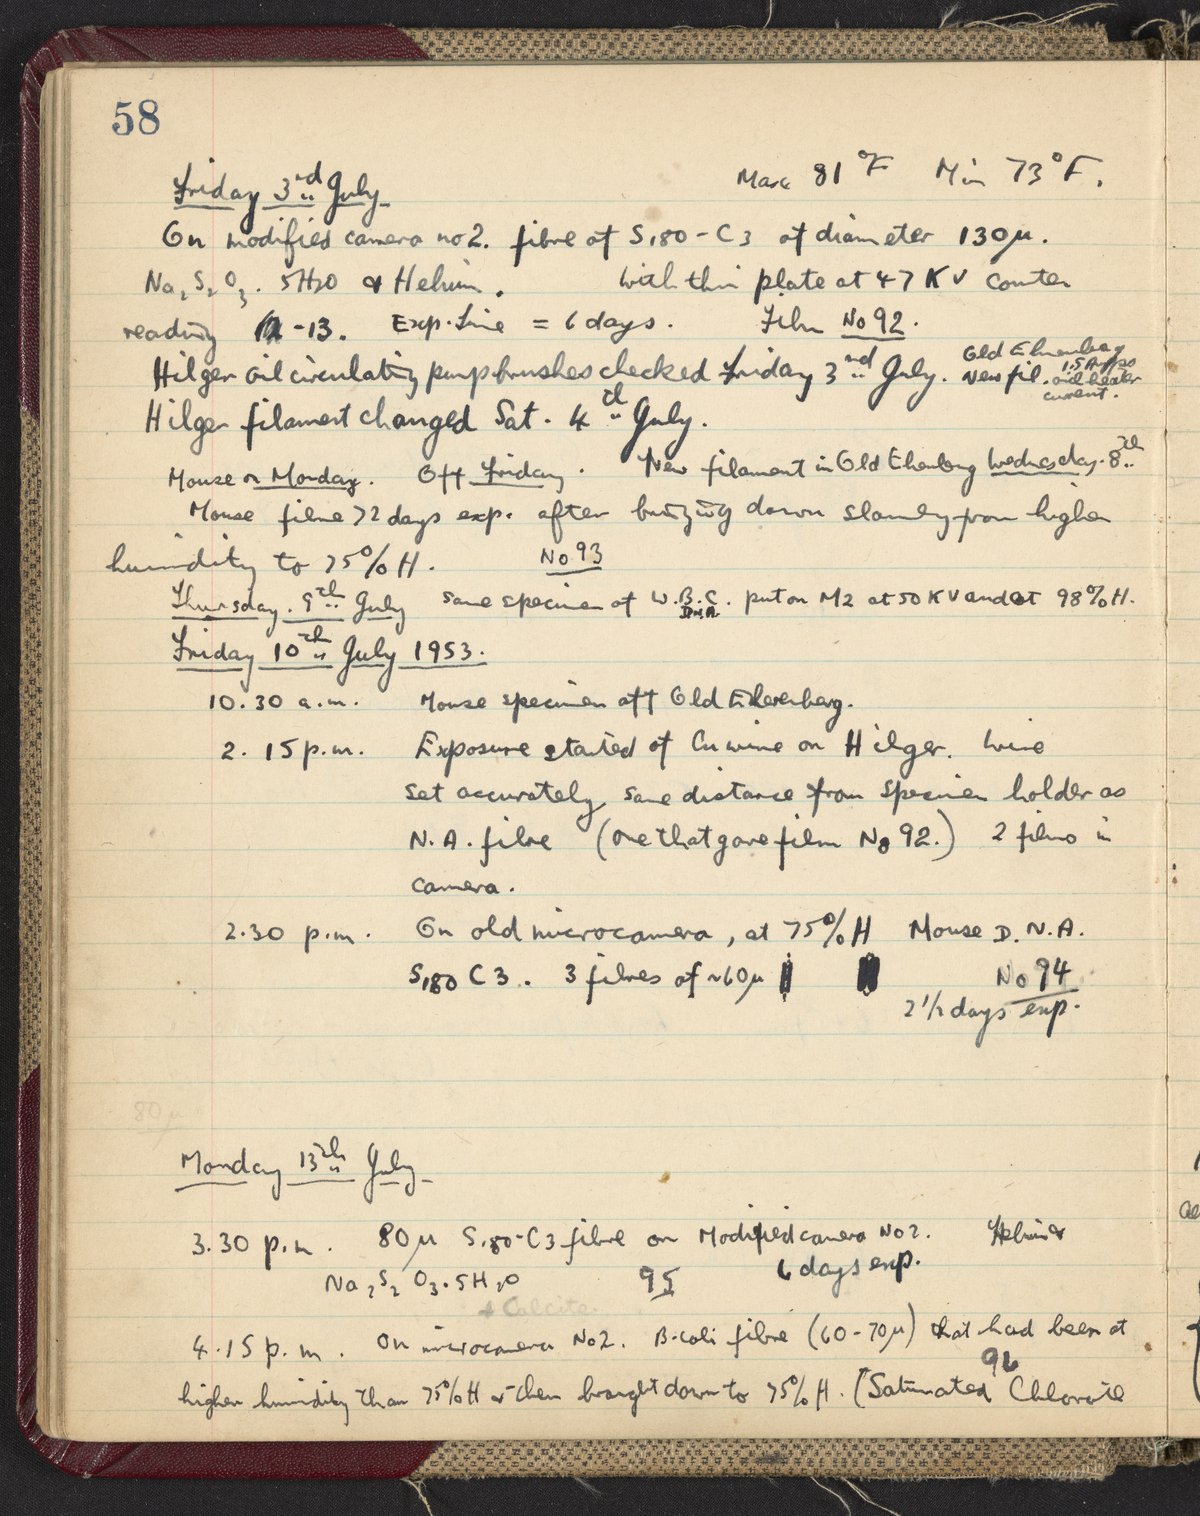 58
Friday 3rd July Max 81°F Min 73°F.
On modified camera no 2. fibre of S180-C3 of diameter 130µ.
Na2S2O3. 5H2O & Helium. with thin plate at 47 KV counter
reading -13. Exp. time = 6 days. Film No 92.
Hilger oil circulating pump brushes checked Friday 3rd July. Old Ehrenberg
New fil. 1.5 Amps
current.
Hilger filament changed Sat. 4th July.
Mouse on Monday. Off Friday. New filament in Old Ehrenberg Wednesday. 8th
Mouse fibre 72 days exp. after bringing down slowly from higher
humidity to 75% H. No 93
Thursday. 9th July same specimen of W.B.C. D.N.A. put on M2 at 50 KV and at 98% H.
Friday 10th July 1953.
10.30 a.m. Mouse specimen off Old Ehrenberg.
2.15 p.m. Exposure started of Cu wire on Hilger. Wire
set accurately same distance from specimen holder as
N.A. fibre (one that gave film No 92.) 2 films in
camera.
2.30 p.m. On old microcamera, at 75% H Mouse D.N.A.
S180 C3. 3 fibres of ~60µ No 94
2 1/2 days exp.
80µ
Monday 13th July
3.30 p.m. 80µ S180-C3 fibre on Modified camera No 2. Helium &
Na2S2O3.5H2O 95 6 days exp.
& Calcite
4.15 p.m. On microcamera No 2. B.coli fibre (60-70µ) that had been at
96
higher humidity than 75% H & then brought down to 75% H. (Saturated Chlorate